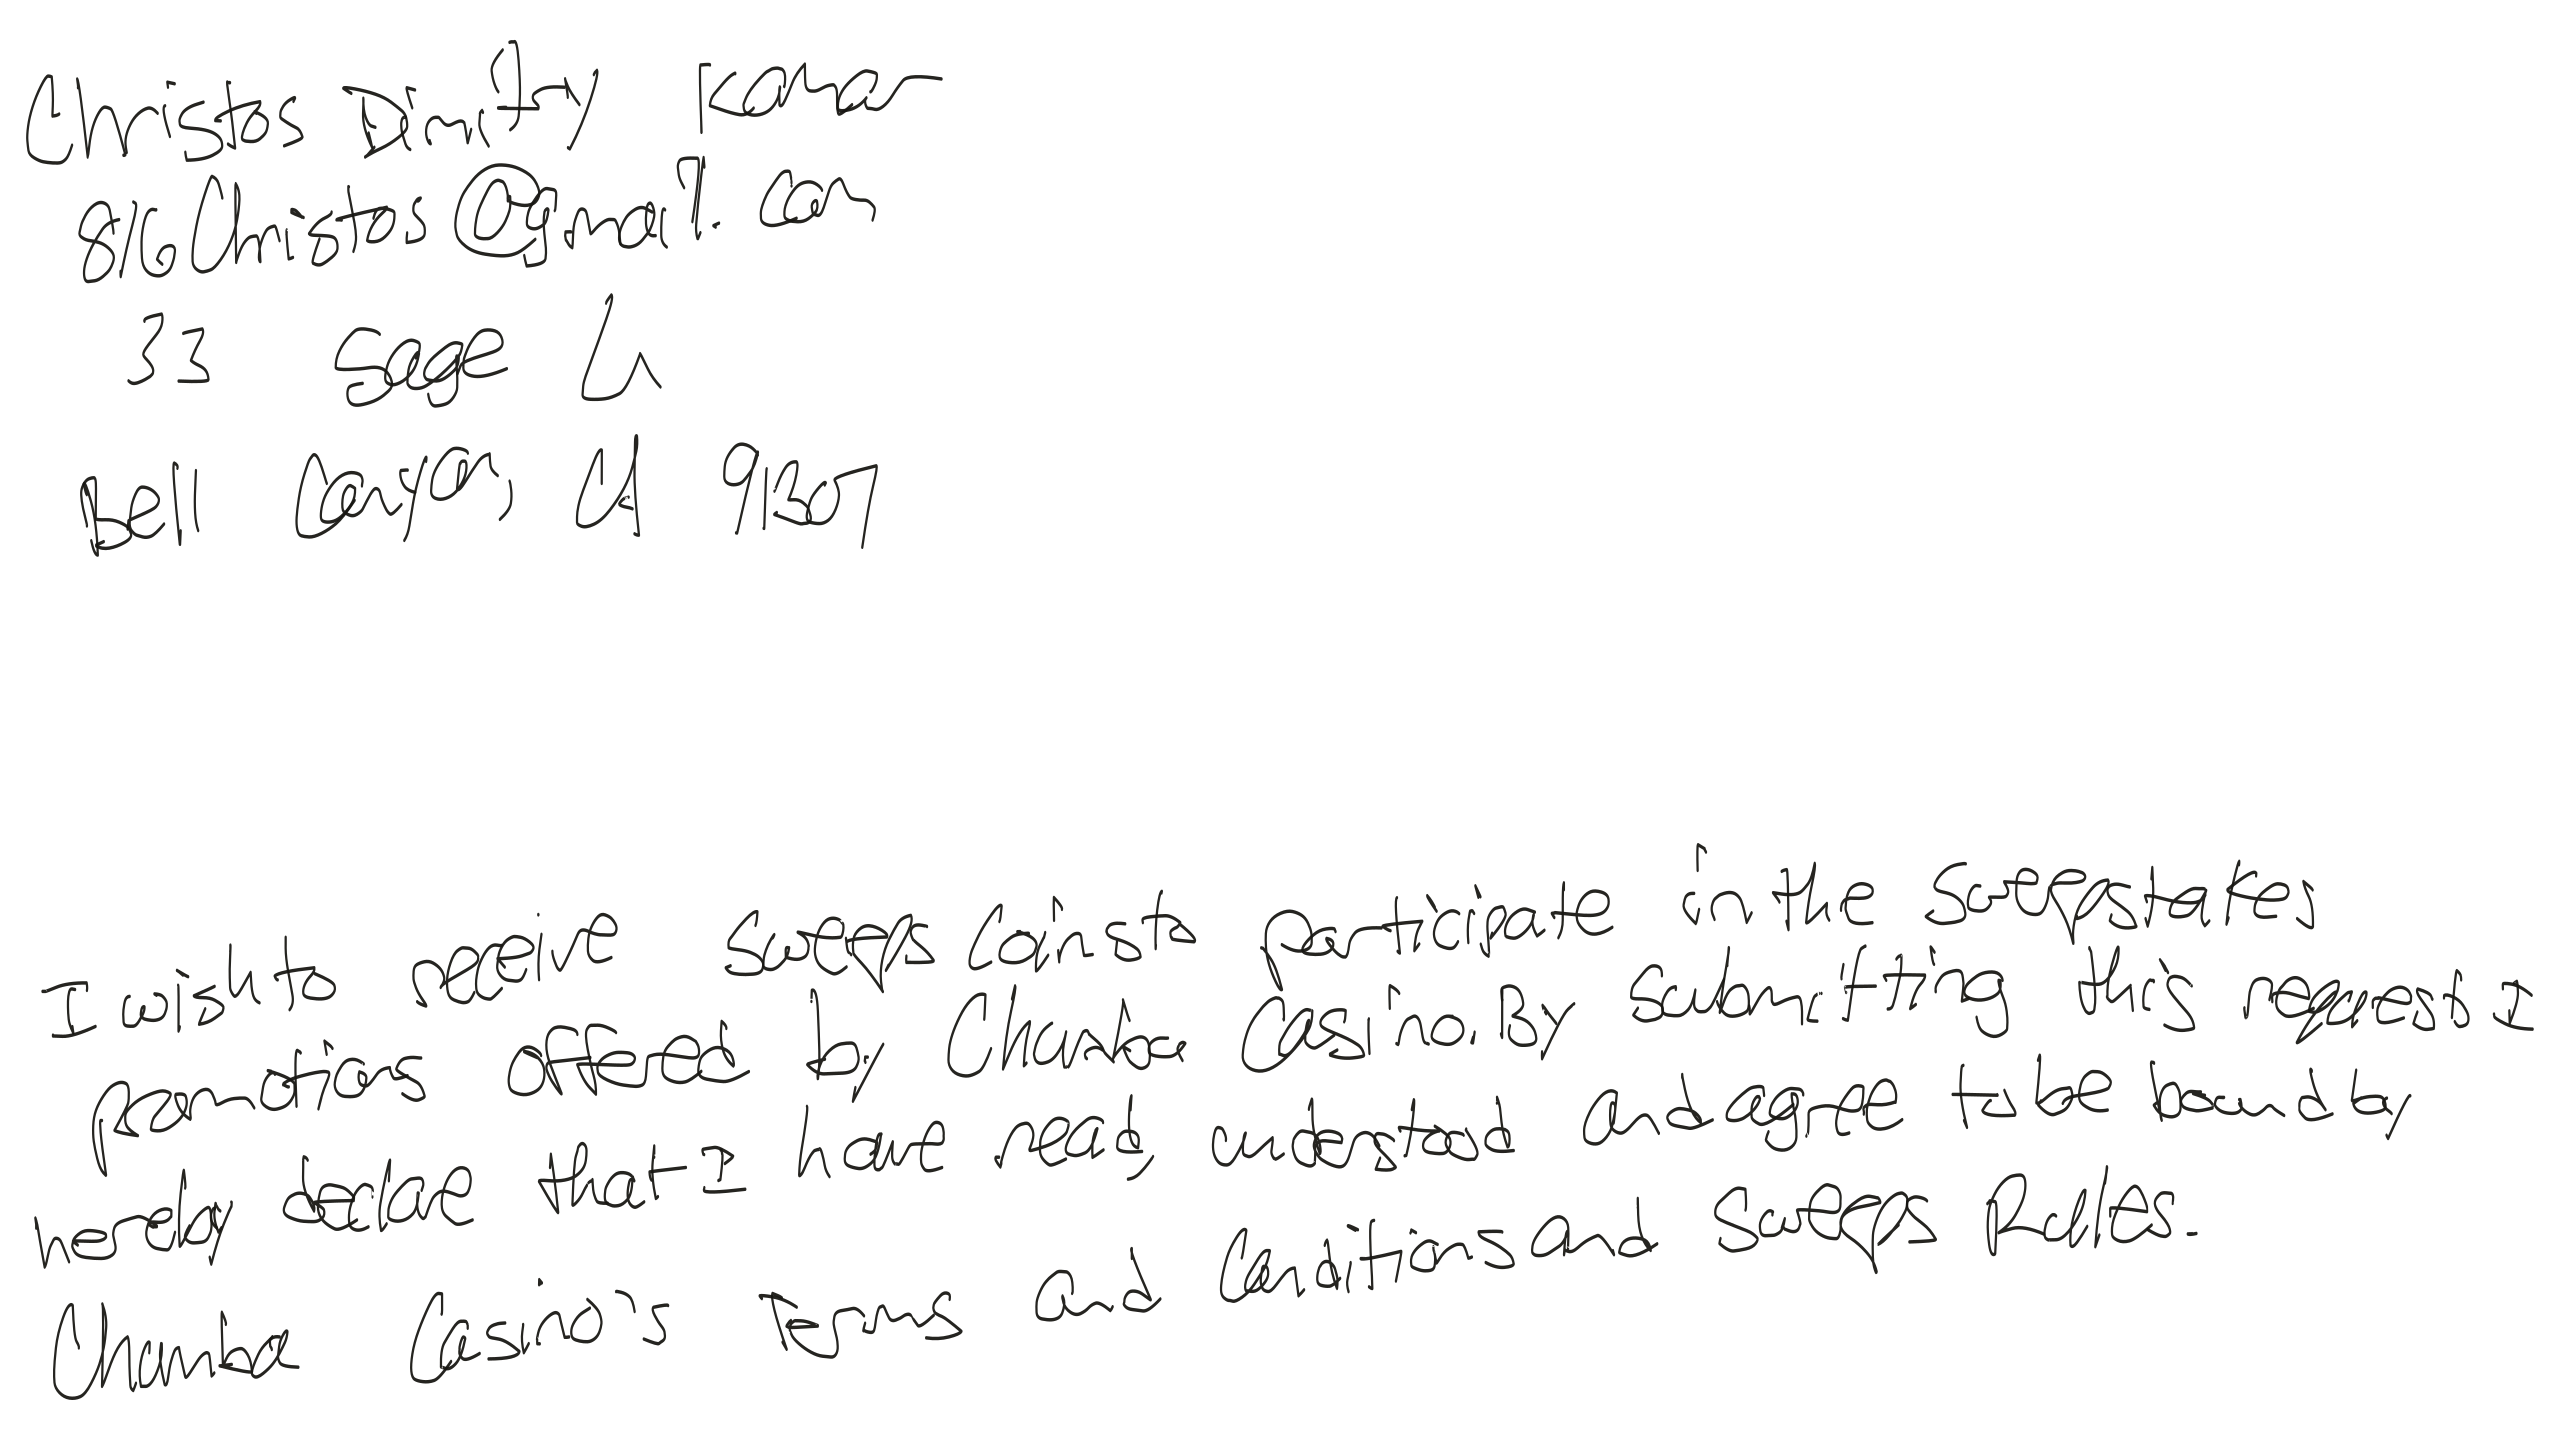 Christos Dimitry Konar
816Christos@gmail.com
33 Sage Ln
Bell Canyon, CA 91307
I wish to receive Sweeps Coins to participate in the sweepstakes
promotions offered by Chumba Casino. By submitting this request I
hereby declare that I have read, understood and agree to be bound by
Chumba Casino's Terms and Conditions and Sweeps Rules.